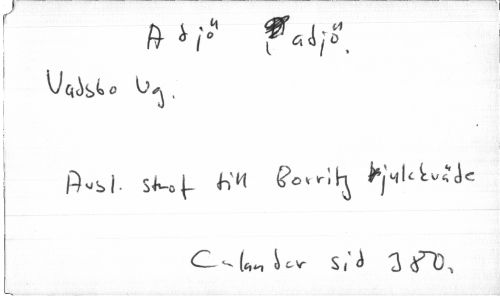 Adjö, adjö.
Vadsbo Vg.
Avsl. strof till Borritz hjulekväde
Calander sid 380.